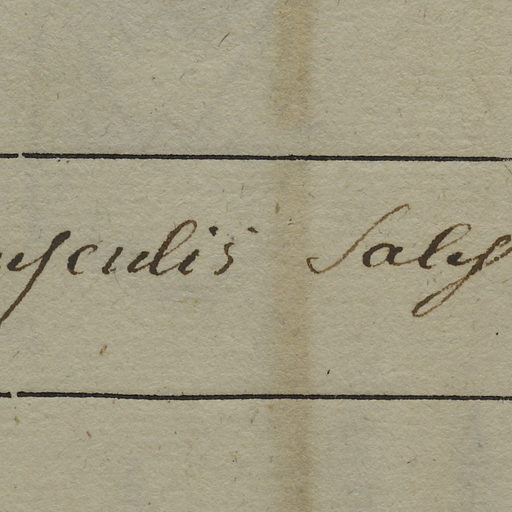 usculis Sals